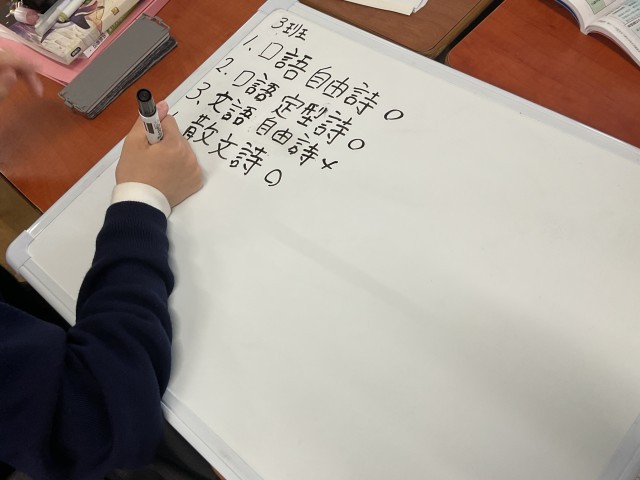 3班
1. 口語自由詩 ○
2. 口語定型詩 ○
3. 文語自由詩 ×
散文詩 ○